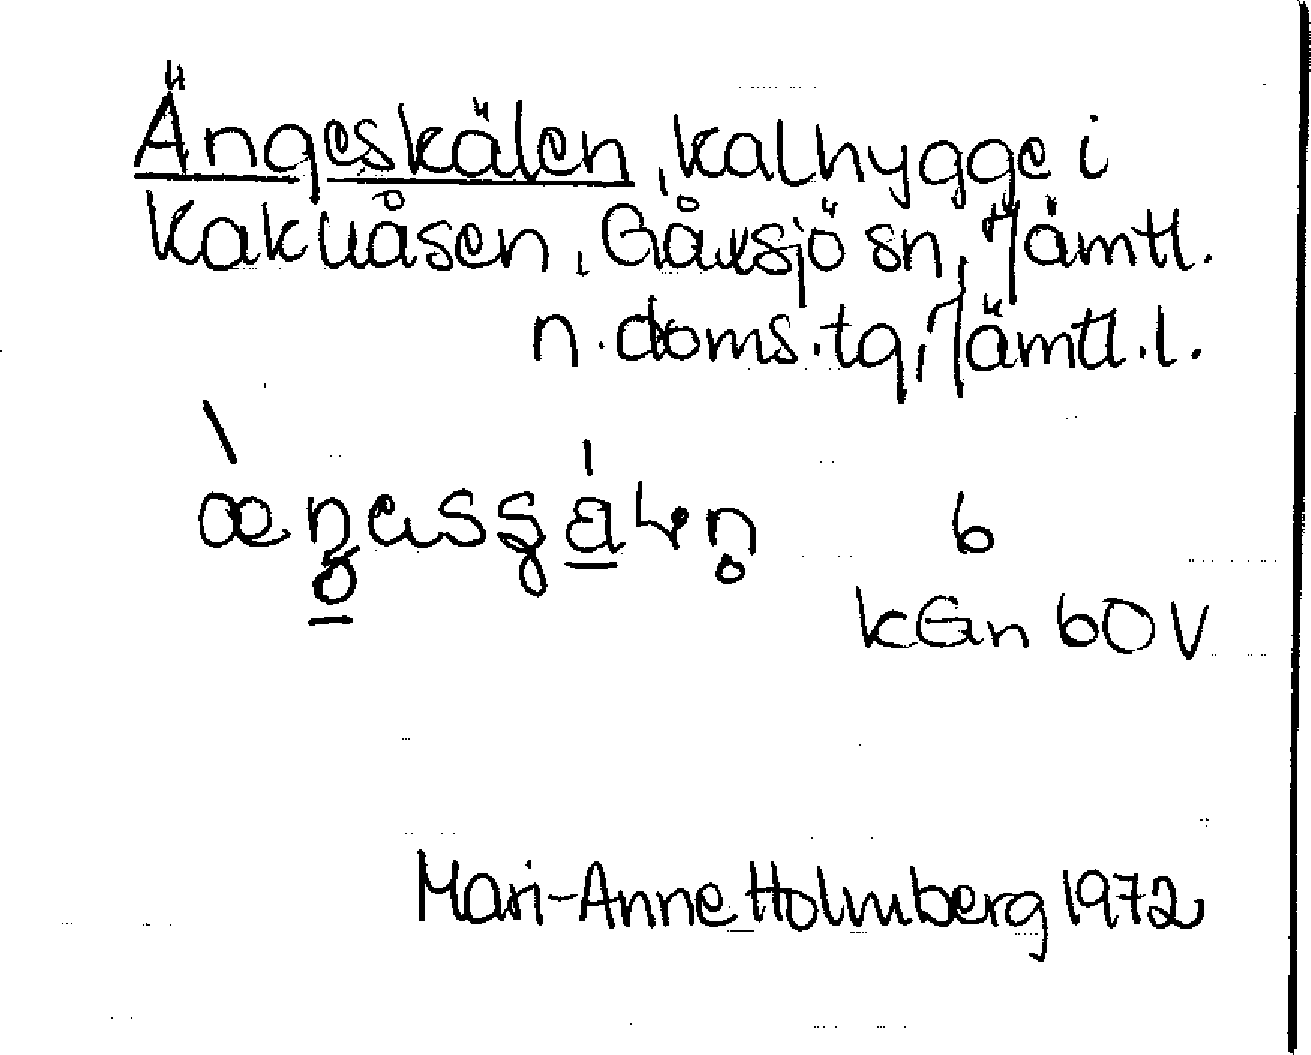 Ängeskälen, kalhygge i
Kakuåsen, Gåxsjö sn, Jämtl.
n. doms. tg, Jämtl. l.
b
kGn 60 V
Mari-Anne Holmberg 1972